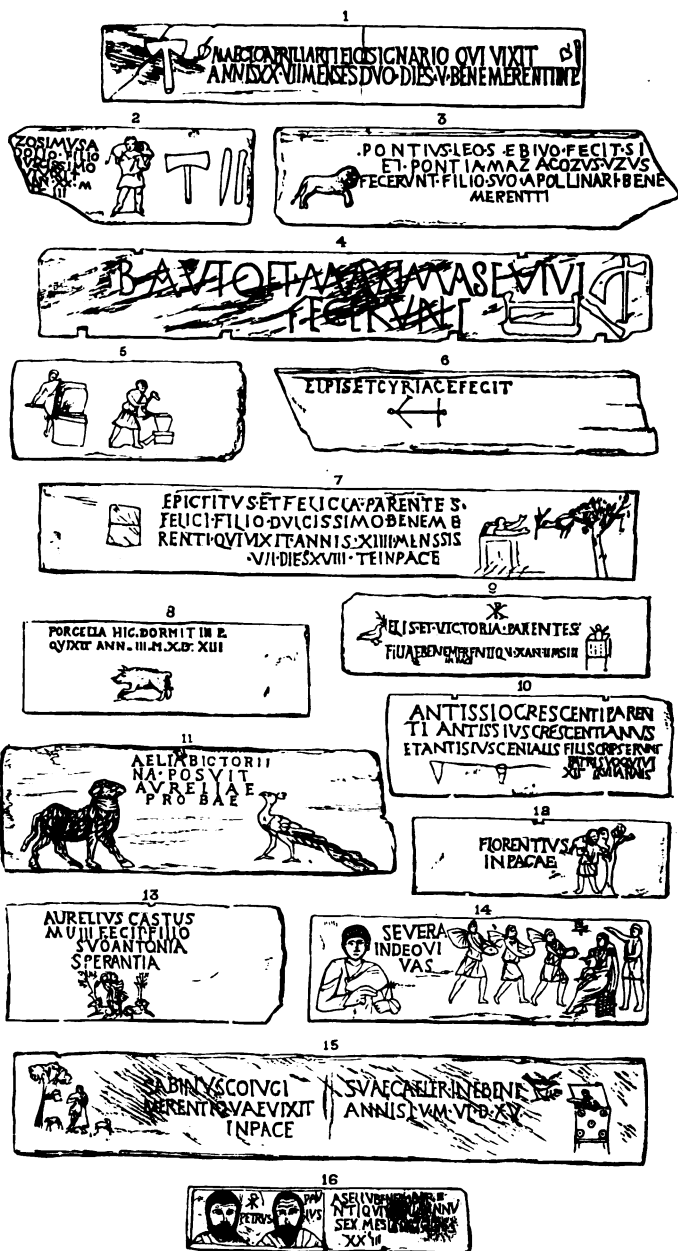 1
MAECIO APRILI ARTIFICI SIGNARIO QVI VIXIT
ANNIS XX·VII MENSES DVO·DIES·V·BENE MERENTI IN P
2
ZOSIMVS A
FILIO
3
·PONTIVS·LEO·S·EBIVO·FECIT·SI
ET·PONTIA·MAZ ACOZVS·VZVS
FECERVNT·FILIO·SVO·APOLLINARI·BENE
MERENTTI
4
B·AVTO ET MAXIMA SE VIVI
FECERVNT
5
6
ELPIS ET CYRIACE FECIT
7
EPICTITVS·ET FELICLA·PARENTES·
FELICI·FILIO·DVLCISSIMO BENEM E
RENTI·QVI VIXIT·ANNIS·XIIII·MENSSIS
·VII·DIES XVIII·TE IN PACE
8
PORCELLA HIC·DORMIT IN P.
QVIXIT ANN·III·M·X·D·XIII
9
ELIS·ET·VICTORIA·PARENTES
FILIAE BENEMERENTI
10
ANTISSIO CRESCENTI PAREN
TI ANTISSIVS CRESCENTIANVS
ET ANTISIVS CENIALIS FILI SCRIPSERVNT
11
AELIA BICTORII
NA·POSVIT
AVRELIAE
PROBAE
12
FLORENTIVS
IN PACAE
13
AVRELIVS CASTVS
M VIII FECIT FILIO
SVO ANTONIA
SPERANTIA
14
SEVERA
IN DEO VI
VAS
15
SABINVS COIVGI SVAE CAELERINE BENE
MERENTI QVAE VIXIT ANNIS LV·M·VI·D·XV
IN PACE
16
PETRVS PAV
LVS
SEX·MES
XXIII